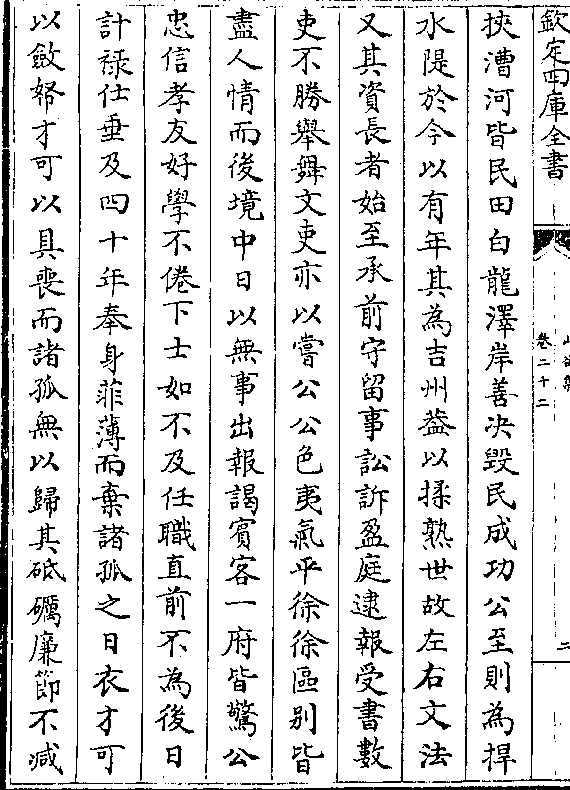 欽定四庫全書
卷二十二
二
挾漕河皆民田白龍澤岸善決毀民成功公至則為捍
水隄於今以有年其為吉州益以揉熟世故左右文法
又其資長者始至承前守留事訟訴盈庭逮報受書數
吏不勝舉舞文吏亦以嘗公公色夷氣平徐徐區别皆
盡人情而後境中日以無事出報謁賓客一府皆驚公
忠信孝友好學不倦下士如不及任職直前不為後日
計禄仕垂及四十年奉身菲薄而棄諸孤之日衣才可
以斂帑才可以具喪而諸孤無以歸其砥礪廉節不减